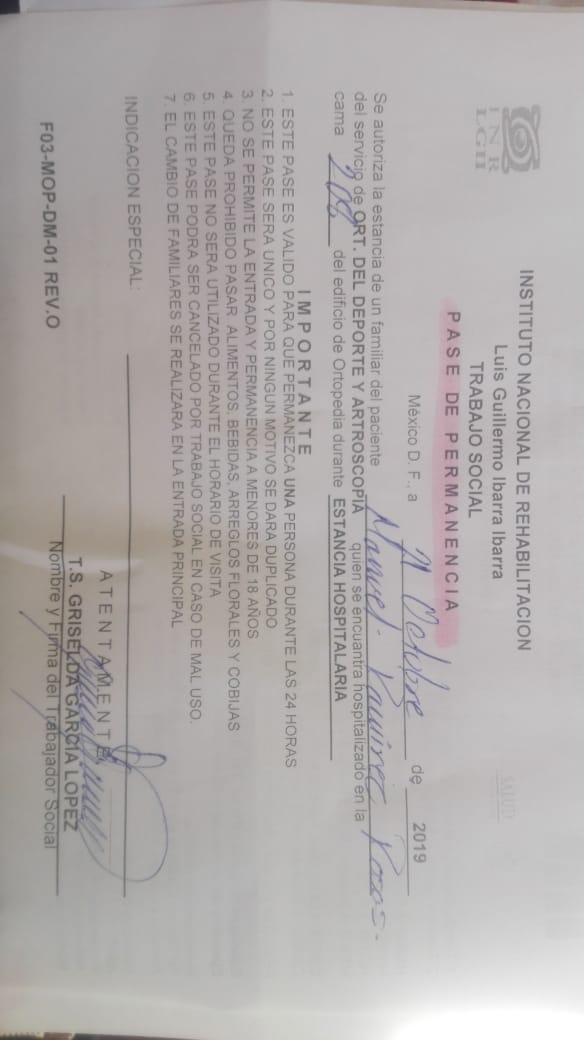 INR
LGII
SALUD
INSTITUTO NACIONAL DE REHABILITACION
Luis Guillermo Ibarra Ibarra
TRABAJO SOCIAL
PASE DE PERMANENCIA
México D. F., a Octubre de 2019
Se autoriza la estancia de un familiar del paciente Manuel Ramirez
del servicio de ORT. DEL DEPORTE Y ARTROSCOPIA quien se encuantra hospitalizado en la
cama 208 del edificio de Ortopedia durante ESTANCIA HOSPITALARIA
IMPORTANTE
1. ESTE PASE ES VALIDO PARA QUE PERMANEZCA UNA PERSONA DURANTE LAS 24 HORAS
2. ESTE PASE SERA UNICO Y POR NINGUN MOTIVO SE DARA DUPLICADO
3. NO SE PERMITE LA ENTRADA Y PERMANENCIA A MENORES DE 18 AÑOS
4. QUEDA PROHIBIDO PASAR ALIMENTOS, BEBIDAS, ARREGLOS FLORALES Y COBIJAS
5. ESTE PASE NO SERA UTILIZADO DURANTE EL HORARIO DE VISITA
6. ESTE PASE PODRA SER CANCELADO POR TRABAJO SOCIAL EN CASO DE MAL USO.
7. EL CAMBIO DE FAMILIARES SE REALIZARA EN LA ENTRADA PRINCIPAL
INDICACION ESPECIAL:
ATENTAMENTE
T.S. GRISELDA GARCIA LOPEZ
Nombre y Firma del Trabajador Social
F03-MOP-DM-01 REV.O